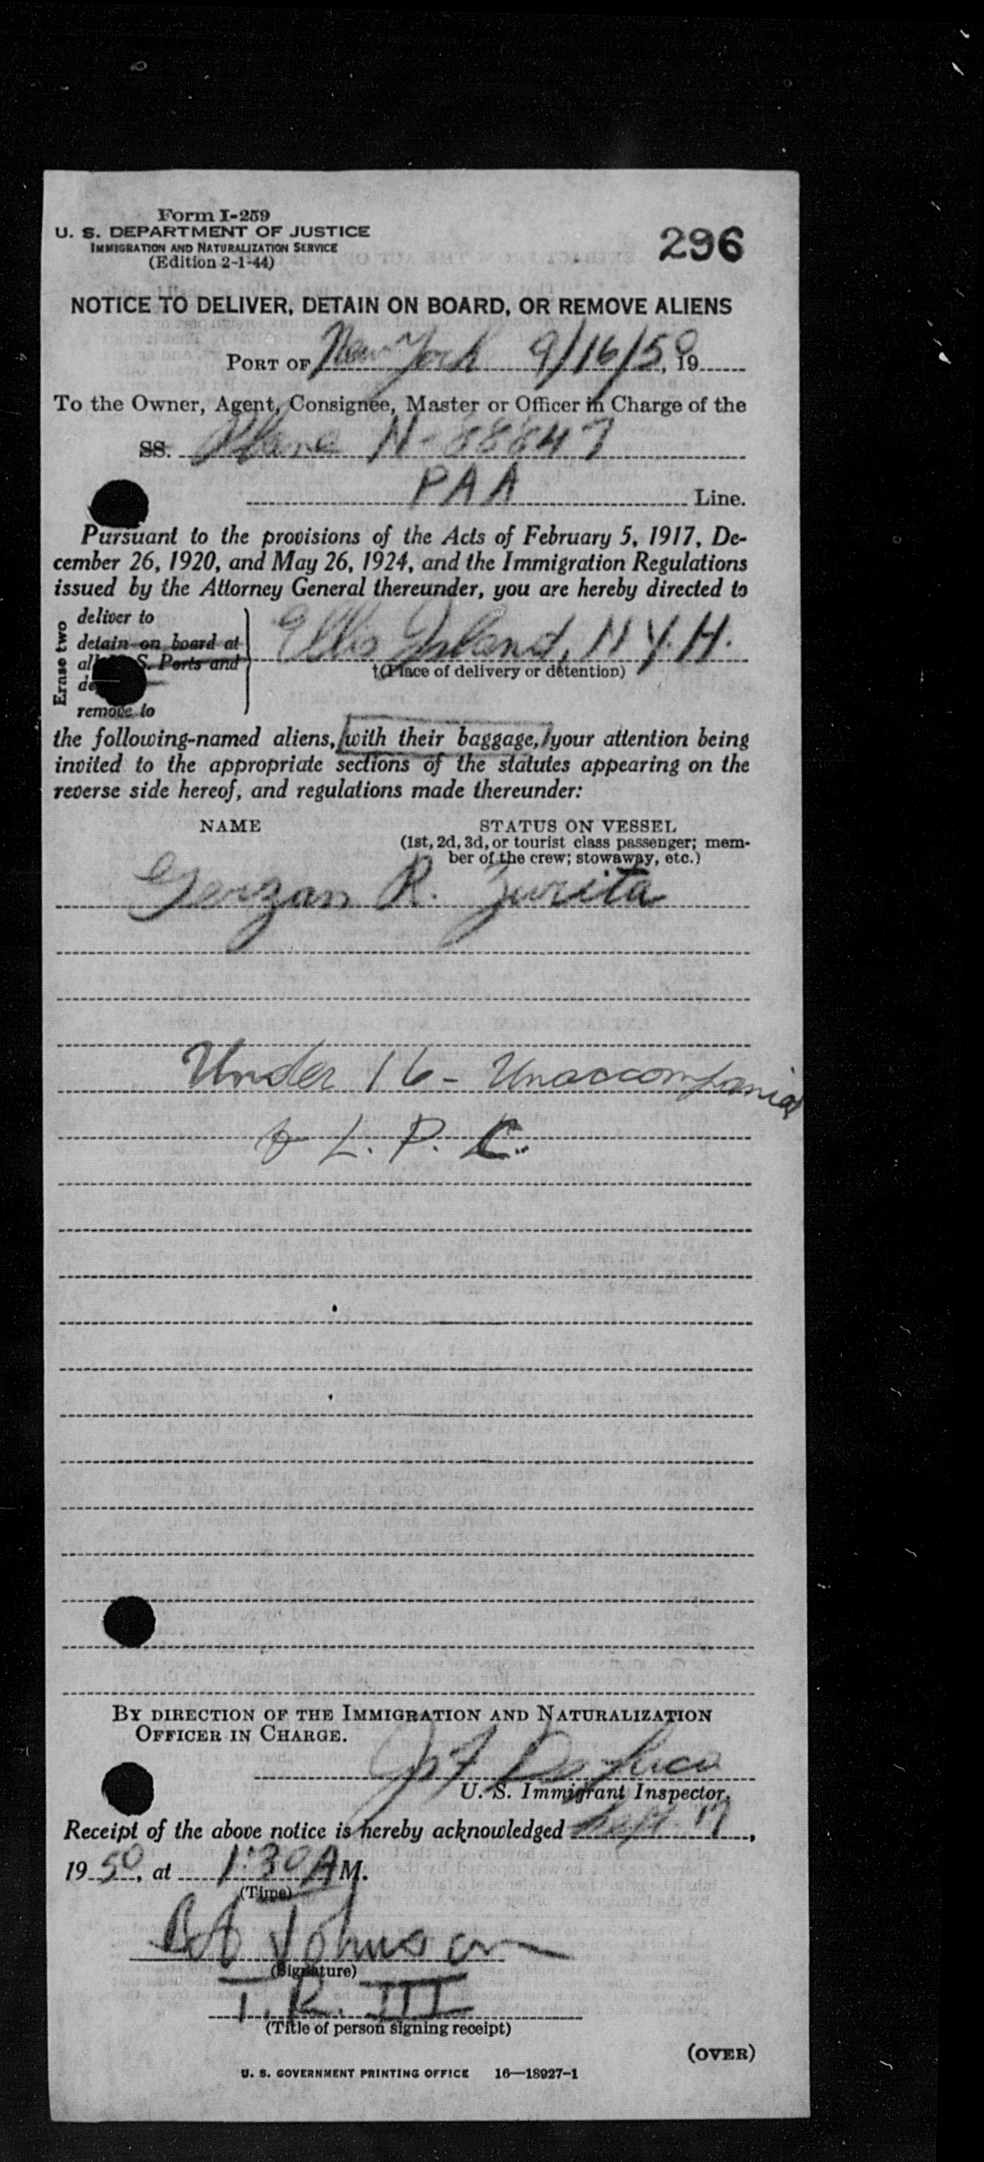 Form I-259
U. S. DEPARTMENT OF JUSTICE
IMMIGRATION AND NATURALIZATION SERVICE
(Edition 2-1-44)
296
NOTICE TO DELIVER, DETAIN ON BOARD, OR REMOVE ALIENS
PORT OF New York 9/16/50, 19
To the Owner, Agent, Consignee, Master or Officer in Charge of the
SS. Plane N-88847
PAA Line.
Pursuant to the provisions of the Acts of February 5, 1917, De-
cember 26, 1920, and May 26, 1924, and the Immigration Regulations
issued by the Attorney General thereunder, you are hereby directed to
Erase two
deliver to
detain on board at
all S. Ports and
remove to
Ellis Island, N.Y.H.
†(Place of delivery or detention)
the following-named aliens, with their baggage, your attention being
invited to the appropriate sections of the statutes appearing on the
reverse side hereof, and regulations made thereunder:
NAME STATUS ON VESSEL
(1st, 2d, 3d, or tourist class passenger; mem-
ber of the crew; stowaway, etc.)
Gerzan R. Zurita
Under 16 - Unaccompanied
& L. P. C.
BY DIRECTION OF THE IMMIGRATION AND NATURALIZATION
OFFICER IN CHARGE.
De Luca
U. S. Immigrant Inspector.
Receipt of the above notice is hereby acknowledged Sept. 17,
1950, at 1:30 A M.
(Time)
Johnson
(Signature)
T. R. III
(Title of person signing receipt)
(OVER)
U. S. GOVERNMENT PRINTING OFFICE 16—18927-1